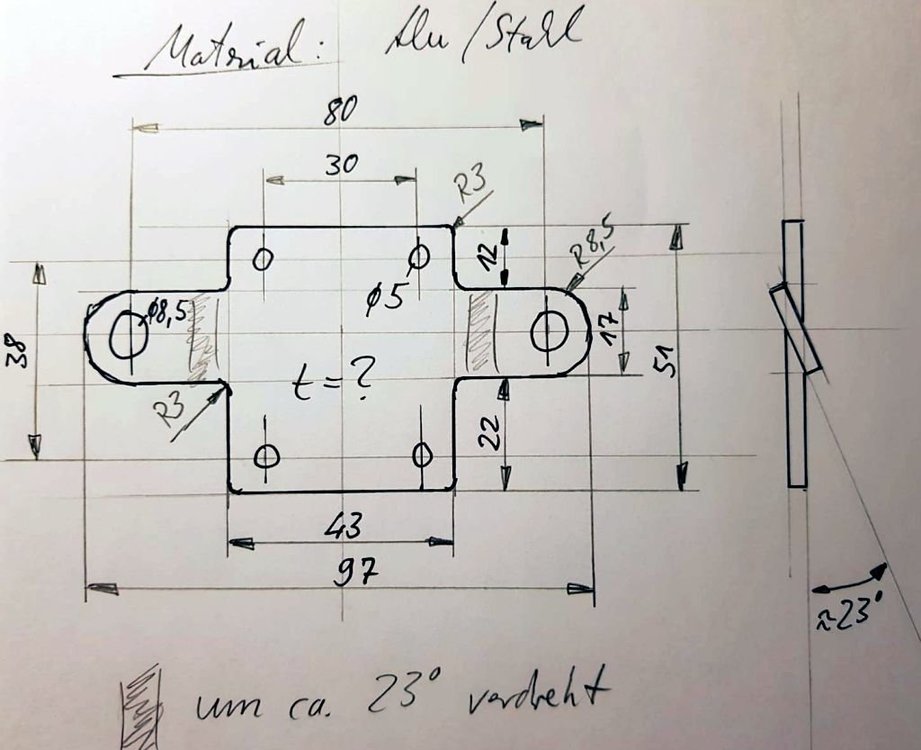 Material: Alu/Stahl
80
30
R3
12
R8,5
φ5
φ8,5
38
17
51
t=?
R3
22
43
97
≈23°
um ca. 23° verdreht